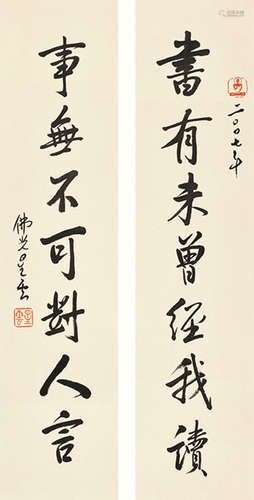 書有未曾經我讀
二〇〇七年
事無不可對人言
佛光星雲